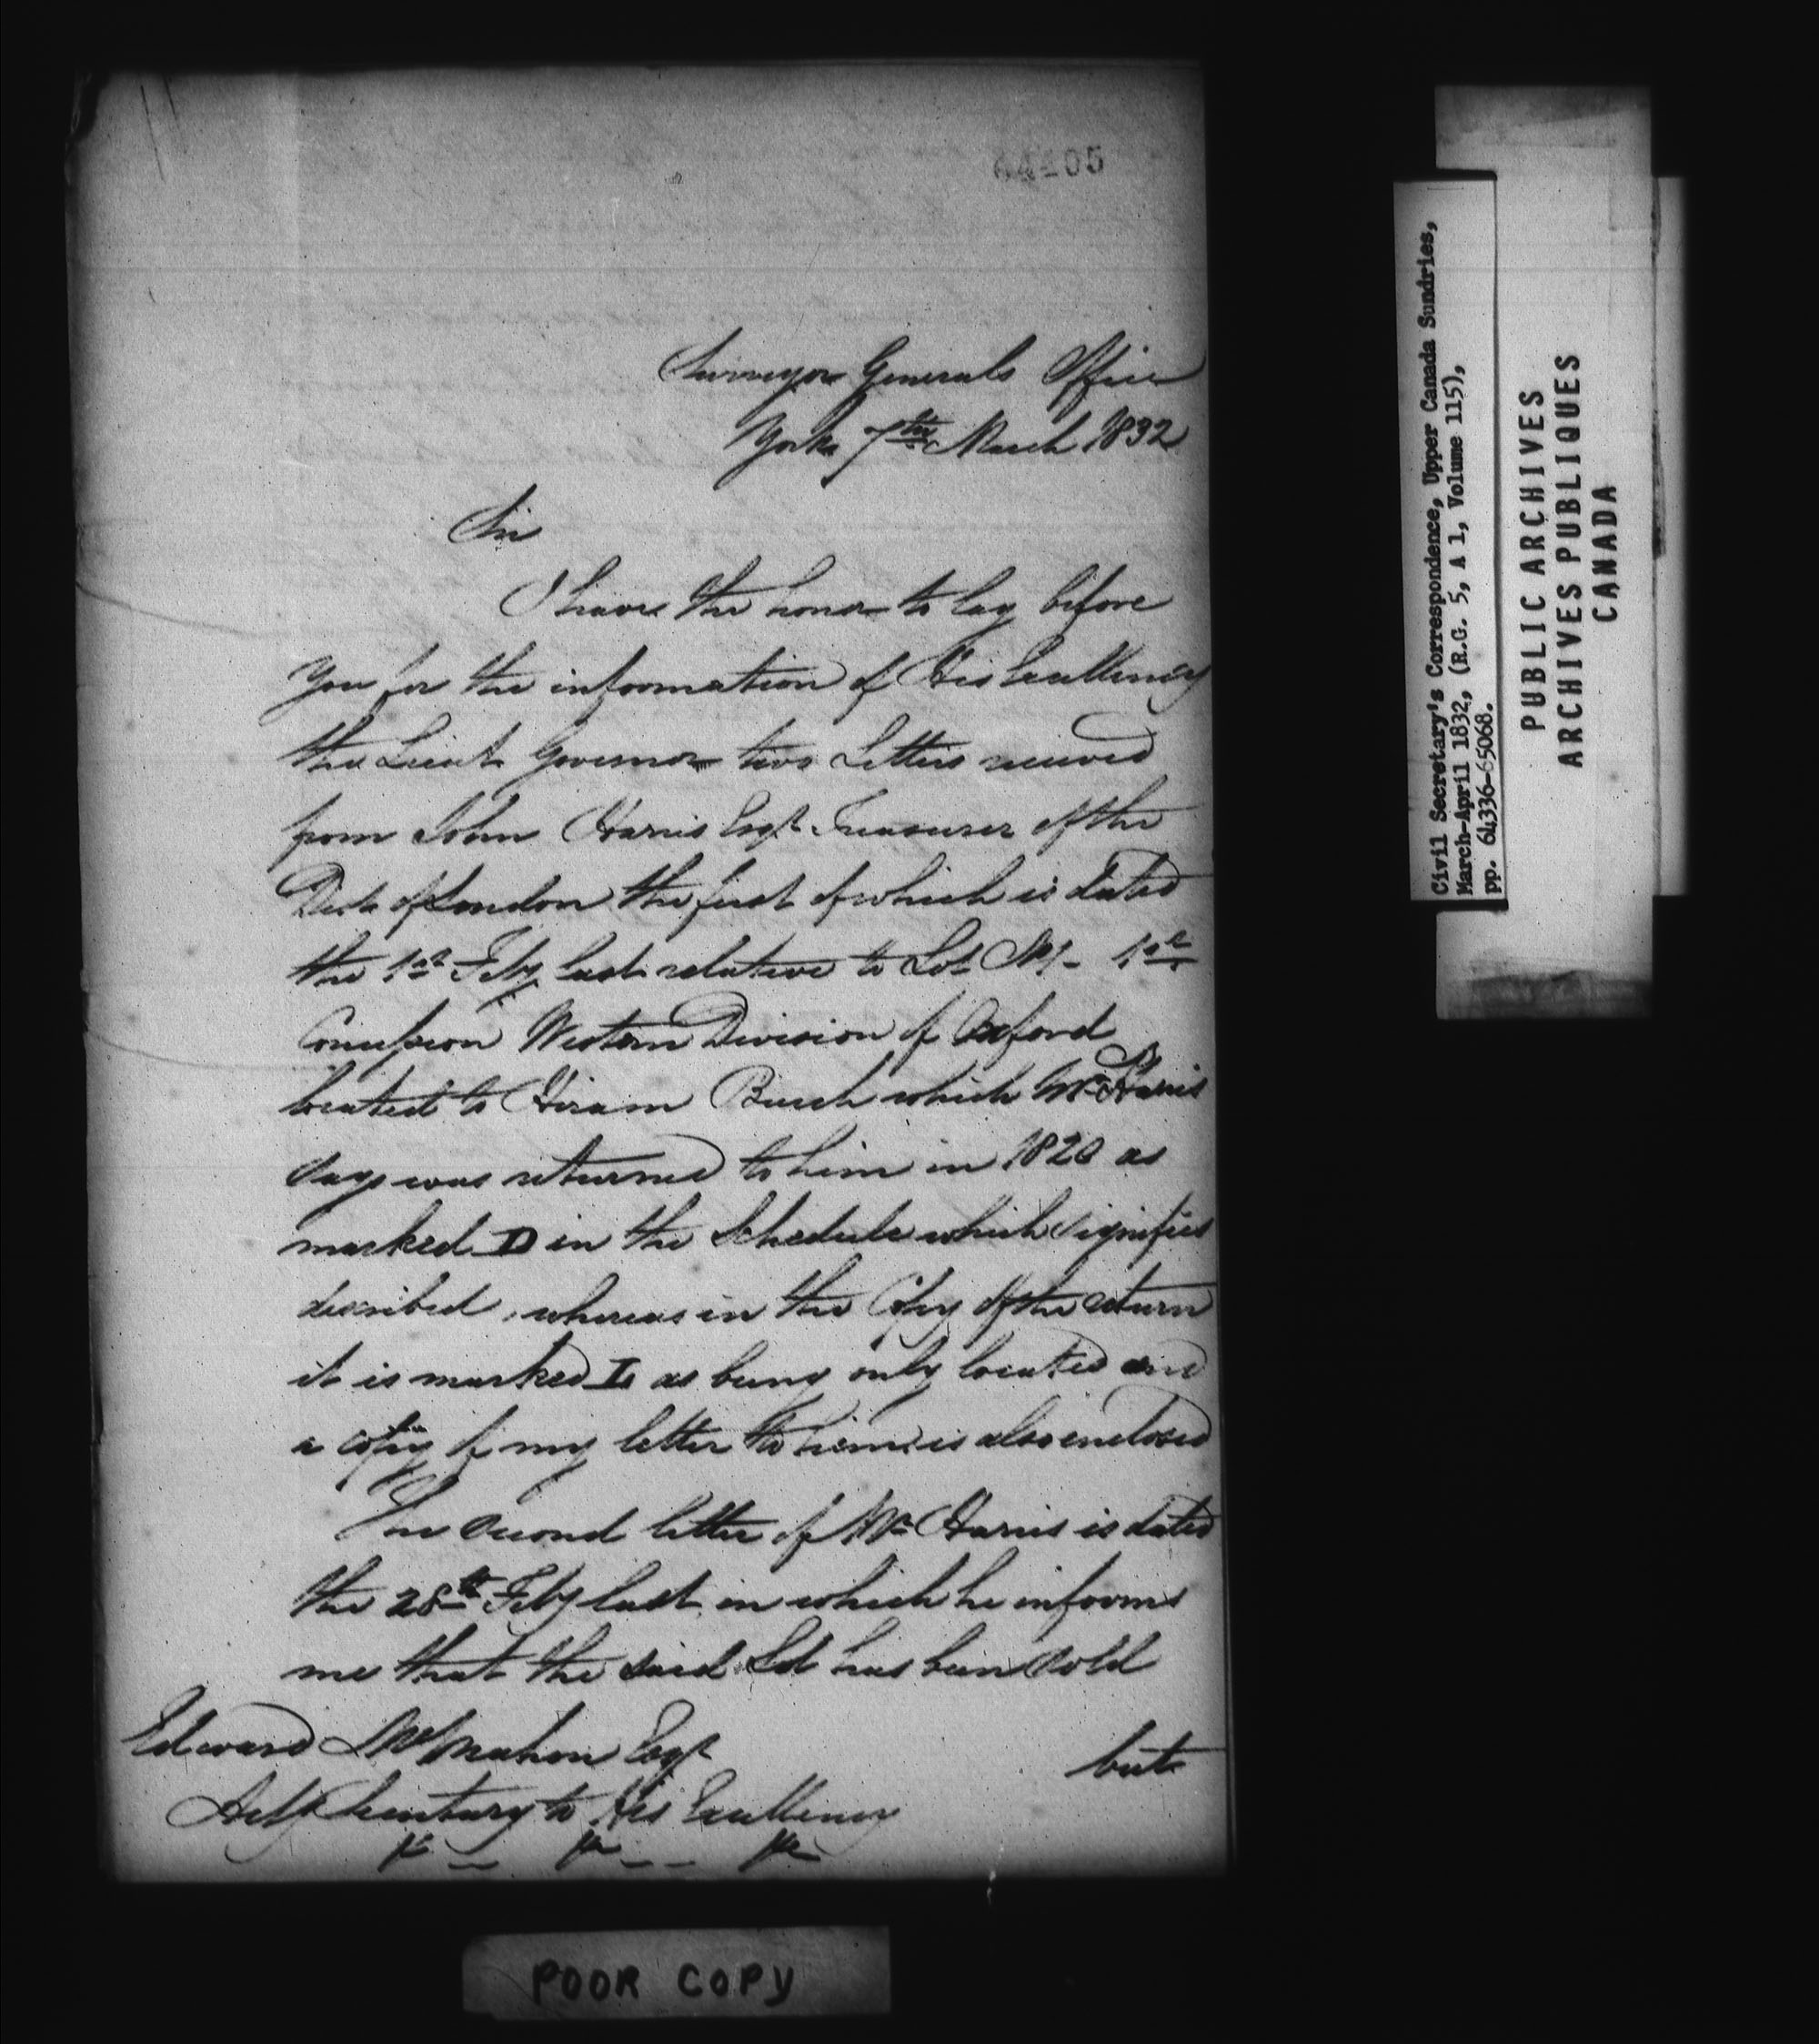 64405
Surveyor Generals Office
York 7th March 1832
Sir
I have the honor to lay before
You for the information of His Excellency
the Lieut Governor two Letters received
from John Harris Esqr Treasurer of the
Dist of London the first of which is dated
the 1st Feby last relative to Lot No 1 - 1st
Concession Western Division of Oxford
located to Hiram Burch which Mr Harris
says was returned to him in 1820 as
marked D in the Schedule which signifies
described, whereas in the Copy of the return
it is marked L as being only located and
a copy of my letter to him is also enclosed
The second letter of Mr Harris is dated
the 28th Feby last in which he informs
me that the said Lot has been sold
but
Edward McMahon Esqr
Actg Secretary to His Excellency
&c -- &c -- &c
Civil Secretary's Correspondence, Upper Canada Sundries,
March-April 1832, (R.G. 5, A 1, Volume 115),
pp. 64336-65068.
PUBLIC ARCHIVES
ARCHIVES PUBLIQUES
CANADA
POOR COPY